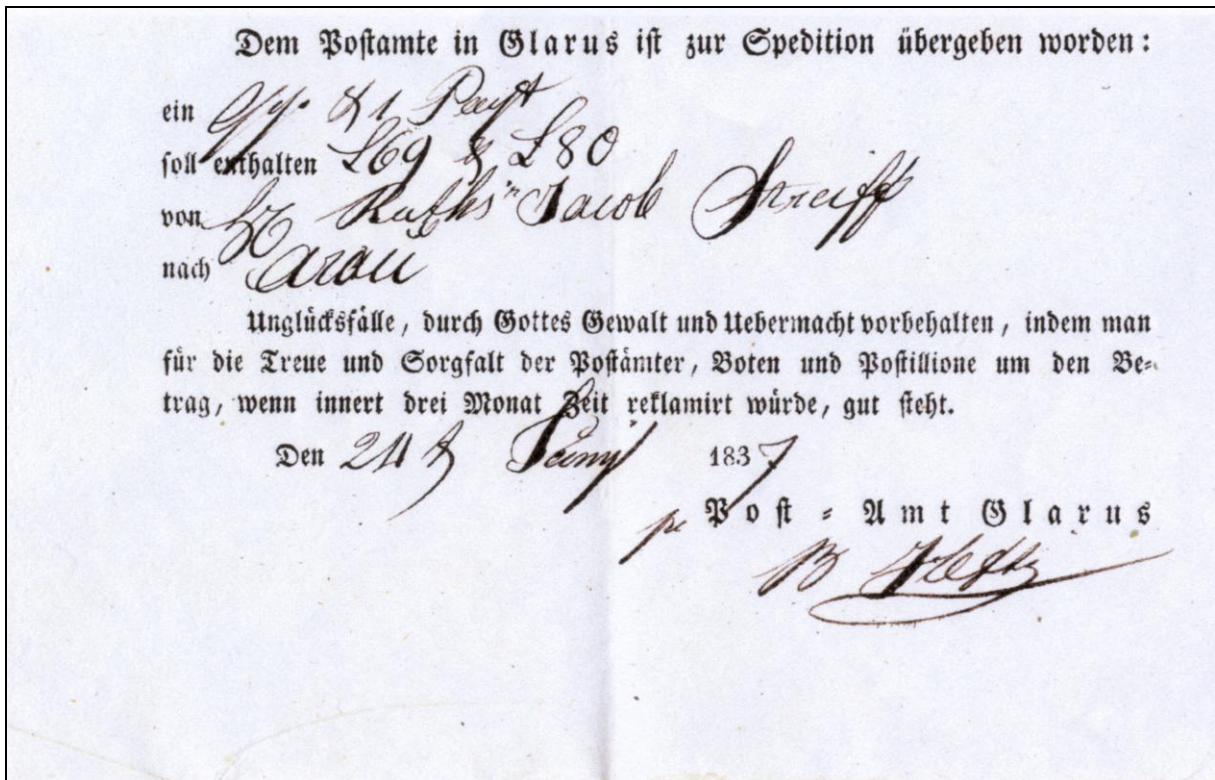 Dem Postamte in Glarus ist zur Spedition übergeben worden:
ein
soll enthalten L69 & L80
von Raths Jacob Streiff
nach Arau
Unglücksfälle, durch Gottes Gewalt und Uebermacht vorbehalten, indem man
für die Treue und Sorgfalt der Postämter, Boten und Postillione um den Be-
trag, wenn innert drei Monat Zeit reklamirt würde, gut steht.
Den 24 Juny 1837
Post-Amt Glarus